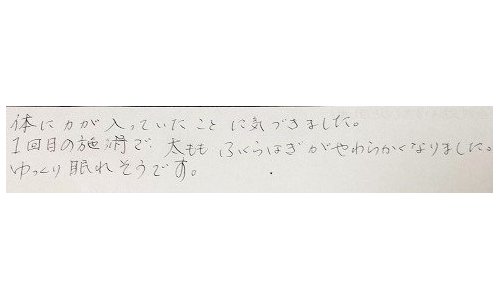 体に力が入っていたことに気づきました。
1回目の施術で 太もも ふくらはぎがやわらかくなりました。
ゆっくり眠れそうです。